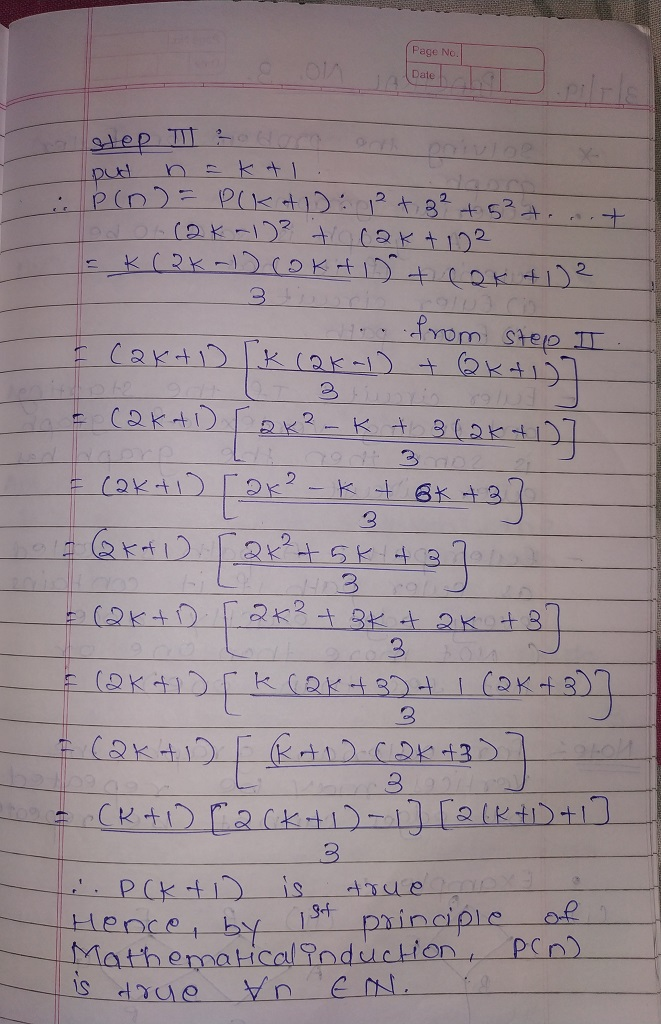 Page No.
Date
step III :-
put n = k+1.
∴ P(n) = P(k+1): 1² + 3² + 5² + .... +
(2k-1)² + (2k+1)²
= k(2k-1)(2k+1) + (2k+1)²
3
... from step II.
= (2k+1) [k(2k-1) + (2k+1)]
3
= (2k+1) [2k² - k + 3(2k+1)]
3
= (2k+1) [2k² - k + 6k + 3]
3
= (2k+1) [2k² + 5k + 3]
3
= (2k+1) [2k² + 3k + 2k + 3]
3
= (2k+1) [k(2k+3) + 1(2k+3)]
3
= (2k+1) [(k+1) (2k+3)]
3
= (k+1) [2(k+1)-1] [2(k+1)+1]
3
∴ P(k+1) is true
Hence, by 1st principle of
Mathematical induction, P(n)
is true ∀n ∈ N.